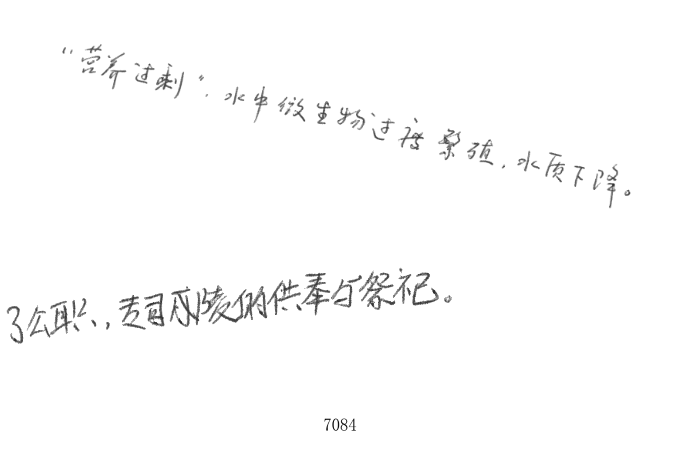 “营养过剩”,水中微生物过渡繁殖,水质下降。
了公职,专司成陵的供奉与祭祀。
7084